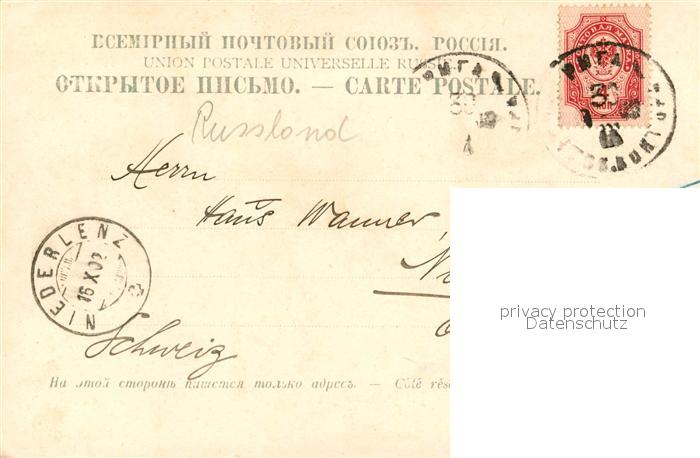 ВСЕМІРНЫЙ ПОЧТОВЫЙ СОЮЗЪ. РОССІЯ.
UNION POSTALE UNIVERSELLE RUSSIE
ОТКРЫТОЕ ПИСЬМО. — CARTE POSTALE.
РИГА
РИГА
Russland
Herrn
Hans Wanner,
NIEDERLENZ
16 X 02
Schweiz
privacy protection
Datenschutz
На этой сторонѣ пишется только адресъ. — Côté rés